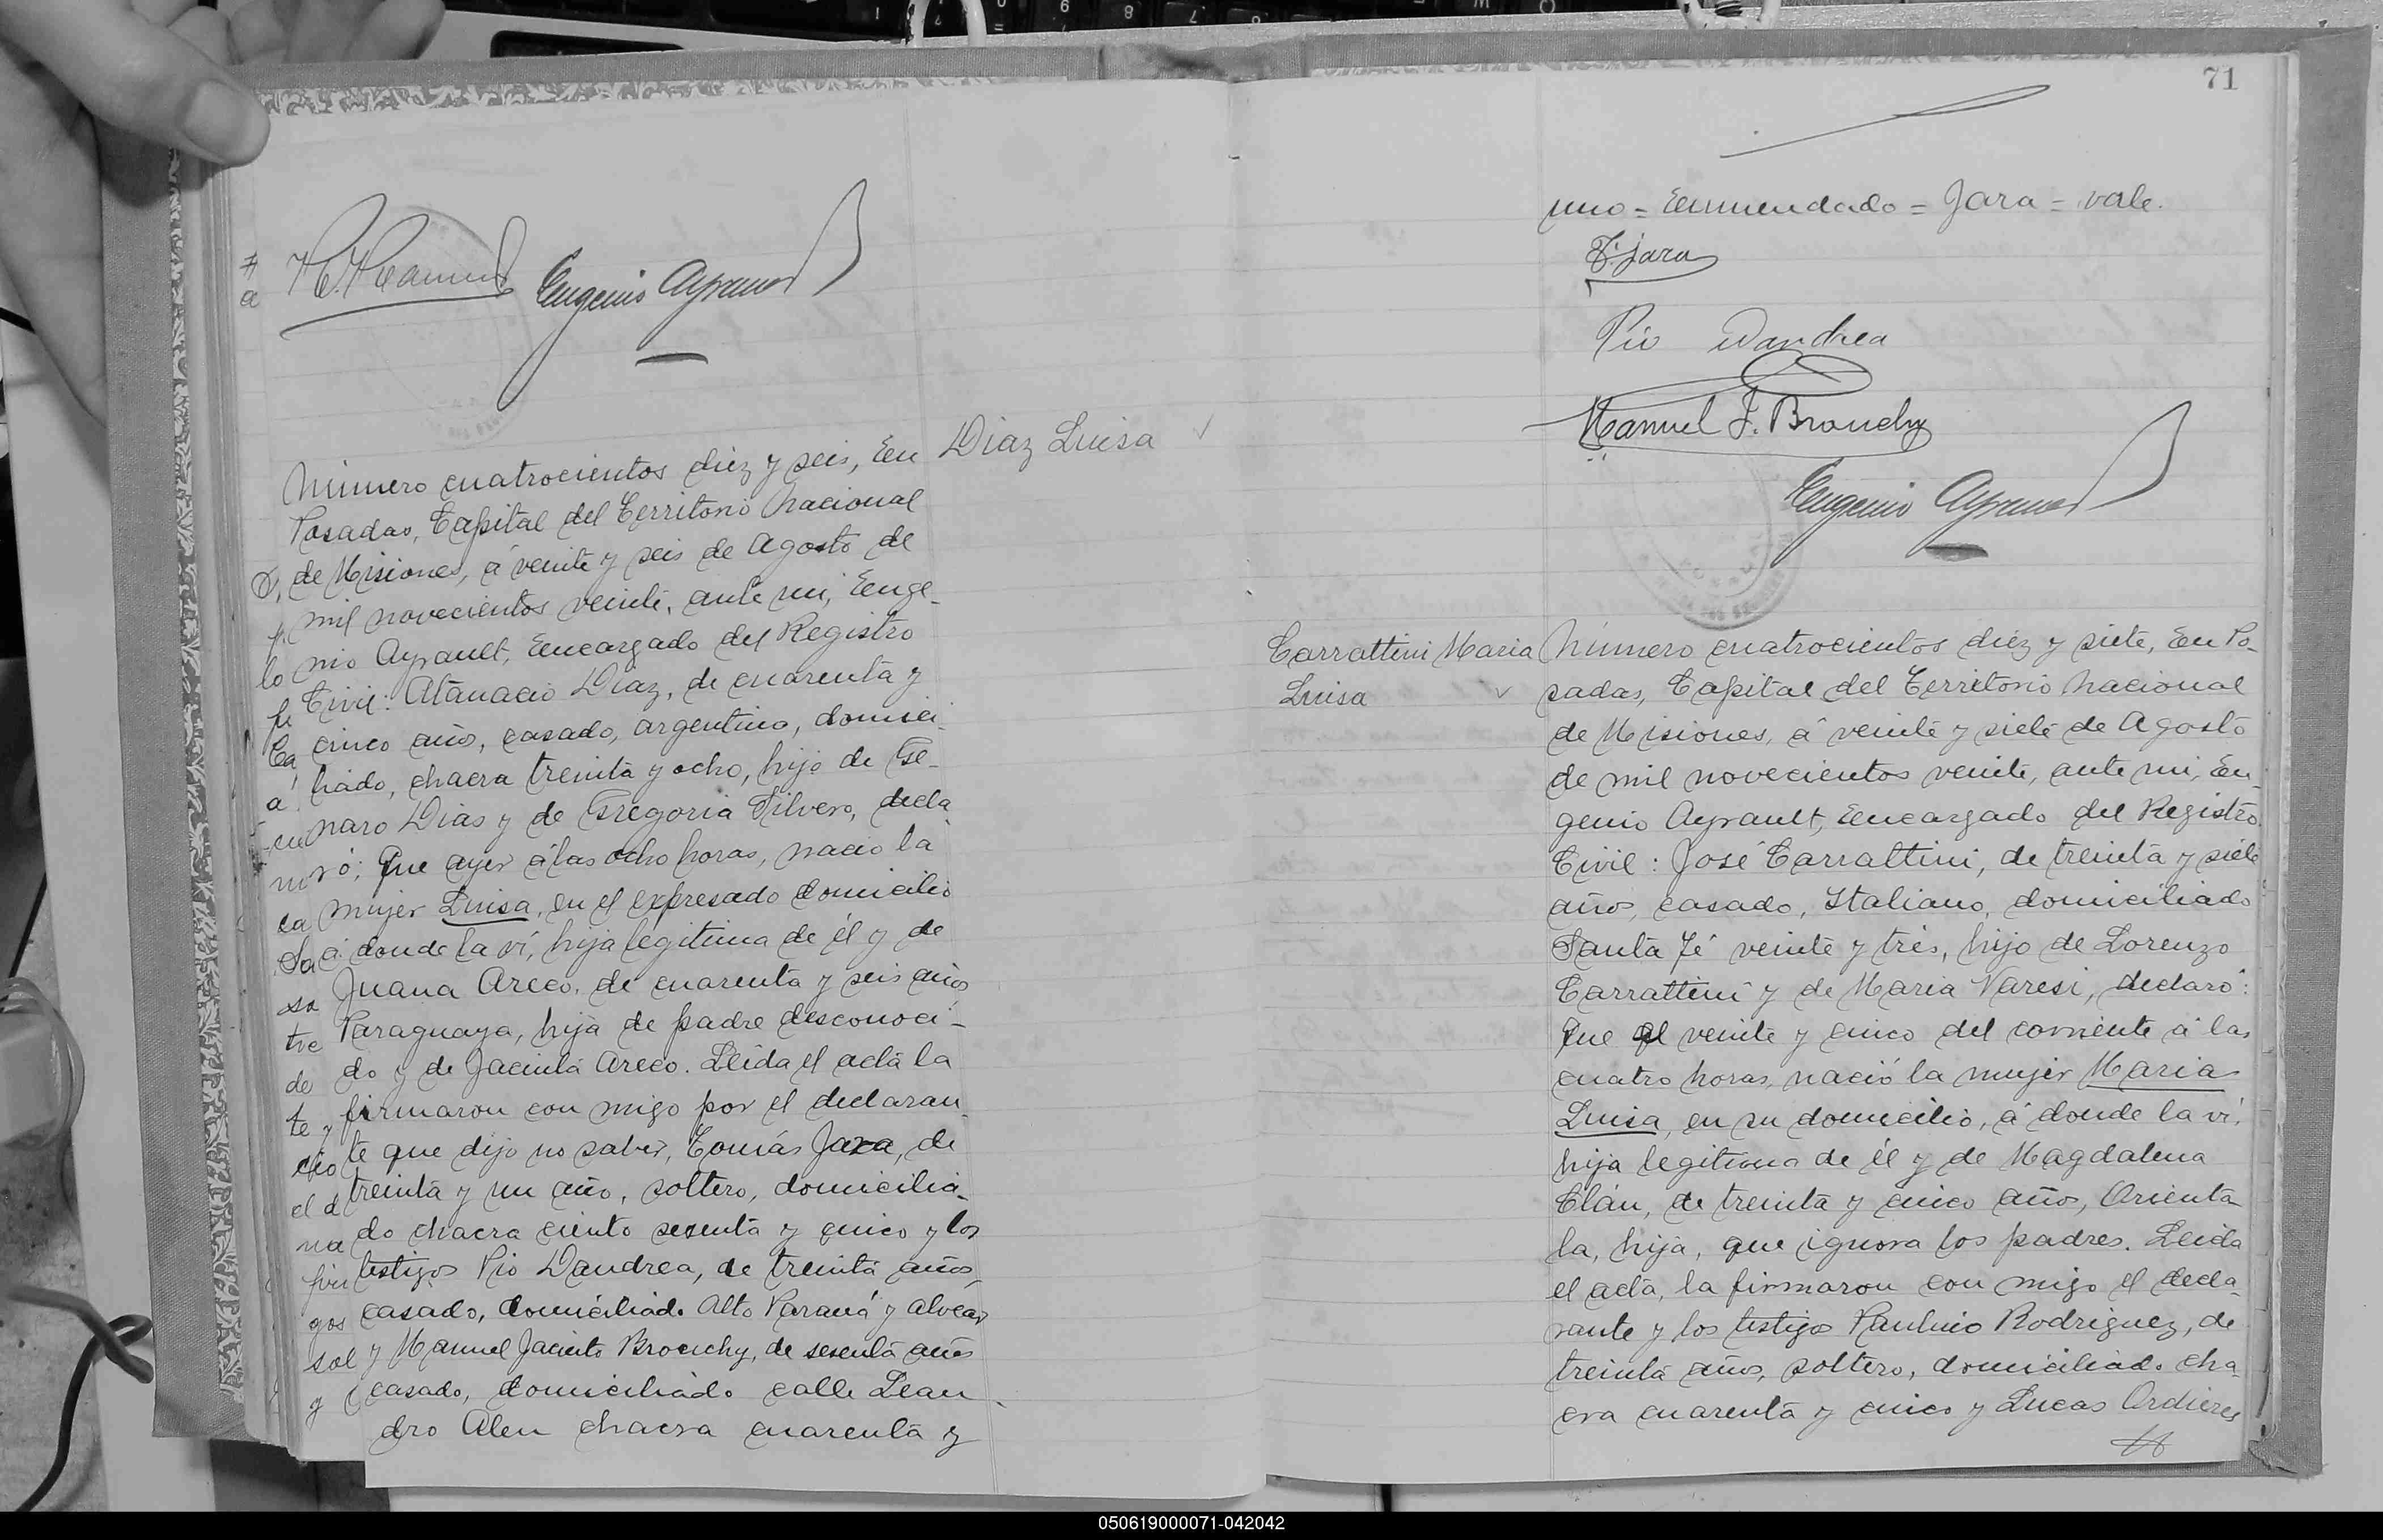 Eugenio Ayrault
Diaz Luisa
Número cuatrocientos diez y seis, En
Posadas, Capital del Territorio Nacional
de Misiones, á veinte y seis de Agosto de
mil novecientos veinte, ante mi, Euge-
nio Ayrault, Encargado del Registro
Civil: Atanacio Diaz, de cuarenta y
cinco años, casado, argentino, domici-
liado, chacra treinta y ocho, hijo de Ge-
naro Dias y de Gregoria Silvero, decla
ró; Que ayer á las ocho horas, nació la
mujer Luisa, en el expresado domicilio
á donde la ví, hija legitima de él y de
Juana Areco, de cuarenta y seis años
Paraguaya, hija de padre desconoci-
do y de Jacinta Areco. Leida el acta la
firmaron con migo por el declaran-
te que dijo no saber, Tomás Jara, de
treinta y un año, soltero, domicilia-
do chacra ciento sesenta y cinco y los
testigos Pio Dandrea, de treinta años,
casado, domiciliado Alto Paraná y Alvear
y Manuel Jacinto Brouchy, de sesenta años
casado, domiciliado calle Lean
dro Alen chacra cuarenta y
71
uno = Enmendado = Jara = vale.
T. Jara
Pio Dandrea
Manuel J. Brouchy
Eugenio Ayrault
Carrattini Maria
Luisa
Número cuatrocientos diez y siete, En Po-
sadas, Capital del Territorio Nacional
de Misiones, á veinte y siete de Agosto
de mil novecientos veinte, ante mi, Eu-
genio Ayrault, Encargado del Registro
Civil: José Carrattini, de treinta y siete
años, casado, Italiano, domiciliado
Santa Fé veinte y tres, hijo de Lorenzo
Carrattini y de Maria Varesi, declaró:
Que el veinte y cinco del corriente á las
cuatro horas, nació la mujer Maria
Luisa, en su domicilio, á donde la ví,
hija legitima de él y de Magdalena
Clán, de treinta y cinco años, Orienta
la, hija, que ignora los padres. Leida
el acta, la firmaron con migo el decla-
rante y los testigos Paulino Rodriguez, de
treinta años, soltero, domiciliado cha
cra cuarenta y cinco y Lucas Ordieres
050619000071-042042